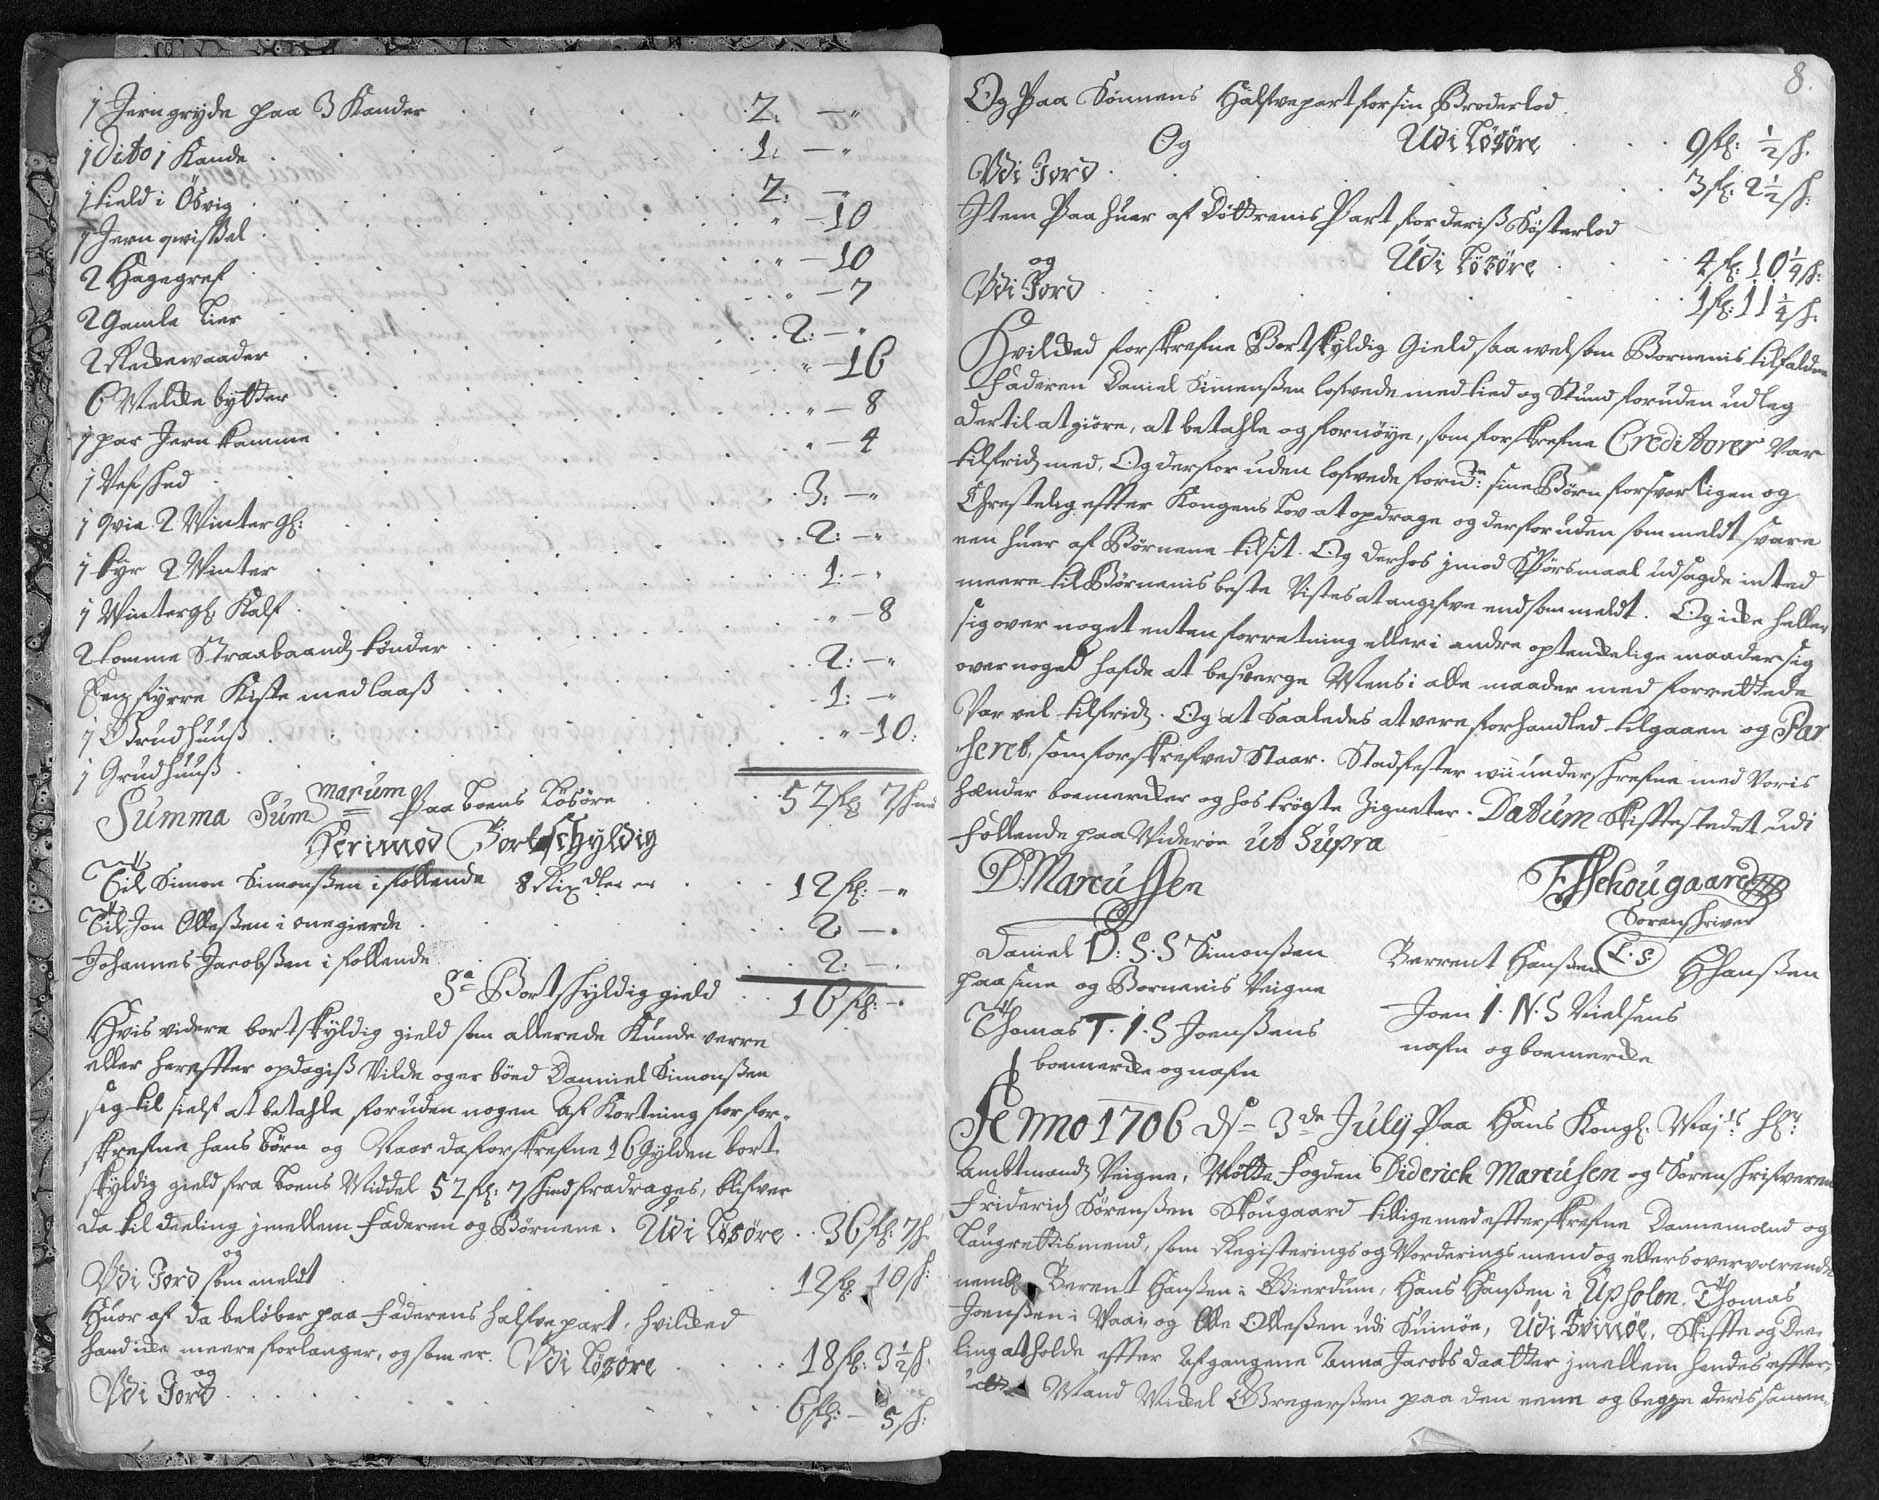 1 Jerngryde paa 3 Kander . . . 2: — "
1 Dito 1 Kande . . . 1: — "
1 Kield i Øsvig . . . 2: — "
1 Jern . . . " — 10
2 Hagegref . . . " — 10
2 Gamle Lier . . . " — 7
2 . . . 2: — "
6 Melkebytter . . . " — 16
1 par Jern Kamme . . . " — 8
1 . . . " — 4
1 Qvie 2 Winter gl: . . . 3: — "
1 Kyr 2 Winter . . . 2: — "
1 Wintergl Kalf . . . 1: — "
2 tomme Straabaands tønder . . . " — 8
Een fyrre Kiste med laaß . . . 2: — "
1 huuß . . . 1: — "
1 Grudhuuß . . . " — 10:
Summa Summarum Paa boens Løsøre . . . 52 fl: 7 skind
Herimod Bortschyldig
Til Simon Simonßen i follende 8 Rixdler er . . . 12 fl: — "
Til Jon Olleßen i onegierde . . . 2: — "
Johannes Jacobßen i follende . . . 2: — .
Sa Bortskyldig gield . . . 16 fl: — .
Hvis videre bortskyldig gield som allerede Kunde verre
eller herefter opdagiß Vilde og er bød Danniel Simonßen
sig til sielf at betahle foruden nogen Af Kortning for for-
skrefne hans børn og Naar da forskrefne 16 Gylden bort
skyldig gield fra boens Middel 52 fl: 7 skind fradrages, blifver
da til deeling imellem Faderen og Børnene. Udi Løsøre . . 36 fl: 7 s
og
Udi Jord som meldt . . . 12 fl: 10 s:
Huor af da beløber paa Faderens halfve part, hvilked
hand icke meere forlanger, og som er. Udi Løsøre . . . 18 fl: 3 1/2 s.
og
Udi Jord . . . 6 fl: — 5 s:
8.
Og Paa Sønnens Halfvepart for sin Broderlod
Udi Løsøre . . . 9 fl: 1/2 s.
Og
Udi Jord . . . 3 fl: 2 1/2 s:
Item Paa huer af Døttrenis Part for deriß Søsterlod
Udi Løsøre . . . 4 fl: 10 1/4 s:
og
Udi Jord . . . 1 fl: 11 1/4 s:
Hvilked forskrefne Bortskyldig Gield saa welsom Bornenis tilfaldne
Faderen Daniel Simenßen lofvede med tied og Stund foruden udleg
dertil at giøre, at betahle og fornøye, som forskrefne Creditorer Var
tilfridz med, Og derfor uden lofvede sine Børn forsvarligen og
Chrestelig effter Kongens Lov at opdrage og derforuden som meldt svare
een huer af Børnene til sit. Og derhos imod Spørsmaal udsagde inted
meere til Børnenis beste Vistes at angifve end som meldt. Og icke heller
sig over noget enten forretning eller i andre optenckelige maader sig
over noged hafde at besverge Mens i alle maader med forrettede
Var vel tilfridz. Og at Saaledes at vere forhandled tilgaaen og Par
herit, som forskrefved Staar. Stadfester wii underskrefne med Voris
hænder boemercker og hos trøgte Zigneter. Datum Skiftestedet udi
Follende paa Viderøe ut Supra
D: Marcussen
F S Schougaard
Sorenskriver
Daniel D: S. S Simonßen
paa sine og Bornenis Veigne
Berrent Hanßen L. S. HHanßen
Thomas T. I. S Joenßens
boemercke og nafn
Joen I. N. S Nielsens
nafn og boemercke
Anno 1706 d 3de July Paa Hans Kongl. Majts
Ambtmandz Veigne, Møtte Fogden Diderich Marcusen og Sorenskrifveren
Friderich Sørenßen Skougaard tillige med efterskrefne Dannemænd og
Laugrettismend, som Registerings og Vorderings mend og ellers overværende
nembl Berent Hanßen i Gierdum, Hans Hanßen i Upsolen, Thomas
Joenßen i Vaai, og Olle Olleßen udi Suinøe, Udi Svinøe, Skifte og Dee-
ling at holde effter Afgangene Anna Jacobs daatter imellem hendes effter-
Mand Mickel Gregerßen paa den eene og begge deris samen-